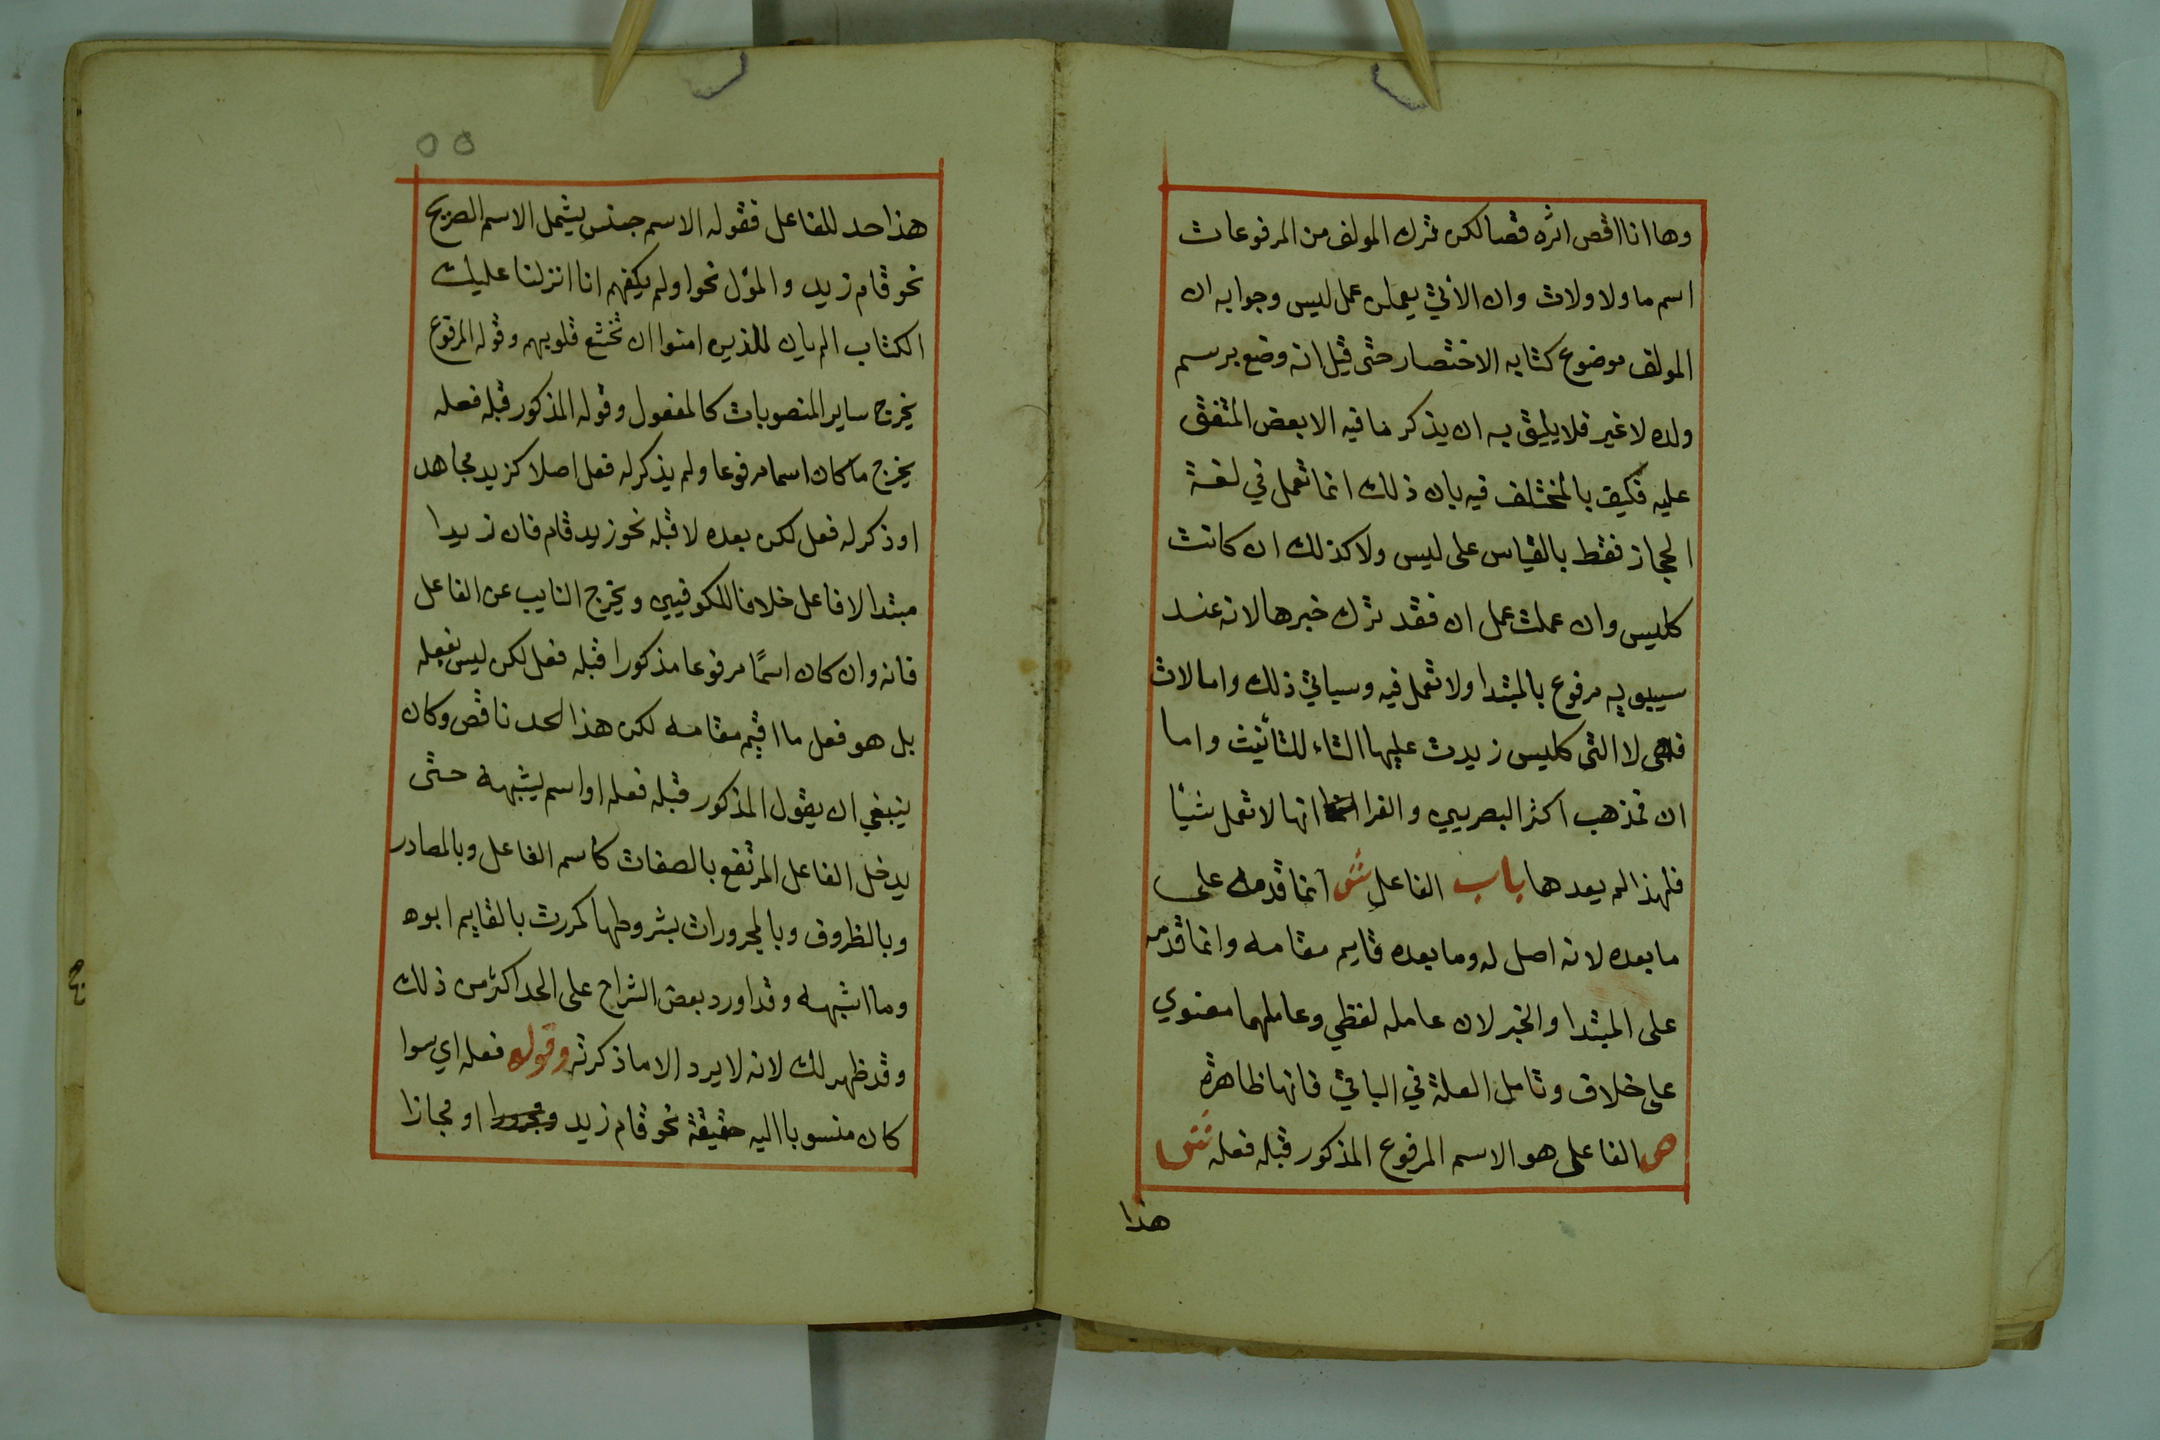 وها انا اقص اثره قصا لكن ترك المولف من المرفوعات
اسم ما ولا ولات وان الأتي يعملن عمل ليس وجوابه ان
المولف موضوع كتابه الاختصار حتى قيل انه وضع برسم
ولده لا غير فلا يليق به ان يذكر ما فيه الا بعض المتفق
عليه فكيف بالمختلف فيه بان ذلك انما تعمل في لغة
الحجاز فقط بالقياس على ليس ولا كذلك ان كانت
كليس وان عملت عمل ان فقد ترك خبرها لانه عند
سيبويه مرفوع بالمبتدا ولا تعمل فيه وسياتي ذلك واما لات
فهي لا التي كليس زيدت عليها التاء للتأنيث واما
ان فمذهب اكثر البصريين والفرا انها لا تعمل شيًا
فلهذا لم يعدها باب الفاعلِ ش انما قدمه على
ما بعده لانه اصل له وما بعده قايم مقامه وانما قدمه
على المبتدا والخبر لان عامله لفظي وعاملهما معنوي
على خلاف وتامل العلة في الباقي فانها ظاهرة
ص الفاعل هو الاسم المرفوع المذكور قبله فعله ش
هذا
٥٥
هذا حد للفاعل فقوله الاسم جنس يشمل الاسم الصريح
نحو قام زيد والمؤل نحو اولم يكفهم انا انزلنا عليك
الكتاب الم يان للذين امنوا ان تخشع قلوبهم وقوله المرفوع
يخرج ساير المنصوبات كالمفعول وقوله المذكور قبله فعله
يخرج ما كان اسما مرفوعا ولم يذكر له فعل اصلا كزيد مجاهد
او ذكر له فعل لكن بعده لا قبله نحو زيد قام فان زيدا
مبتدا لا فاعل خلافا للكوفيين ويخرج النايب عن الفاعل
فانه وان كان اسمًا مرفوعا مذكورا قبله فعل لكن ليس بفعله
بل هو فعل ما اقيم مقامه لكن هذا الحد ناقص وكان
ينبغي ان يقول المذكور قبله فعله او اسم يشبهه حتى
يدخل الفاعل المرتفع بالصفات كاسم الفاعل وبالمصادر
وبالظروف وبالمجرورات بشروطها كمررت بالقايم ابوه
وما اشبهه وقد اورد بعض الشراح على الحد اكثر من ذلك
وقد ظهر لك لانه لا يرد الا ما ذكرته وقوله فعله اي سوا
كان منسوبا اليه حقيقة نحو قام زيد او مجازا